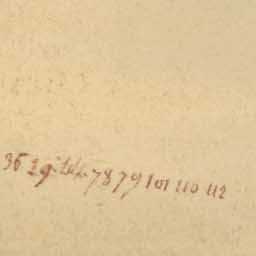 36 29 78 79 101 110 112